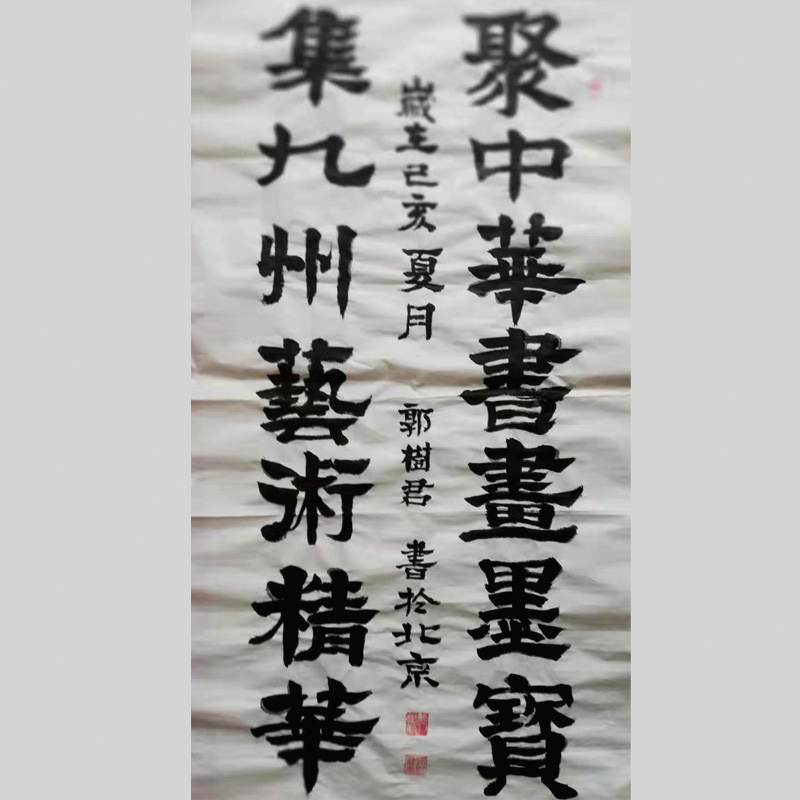 聚中華書畫墨寶
歲在己亥夏月 郭樹君 書於北京
集九州藝術精華